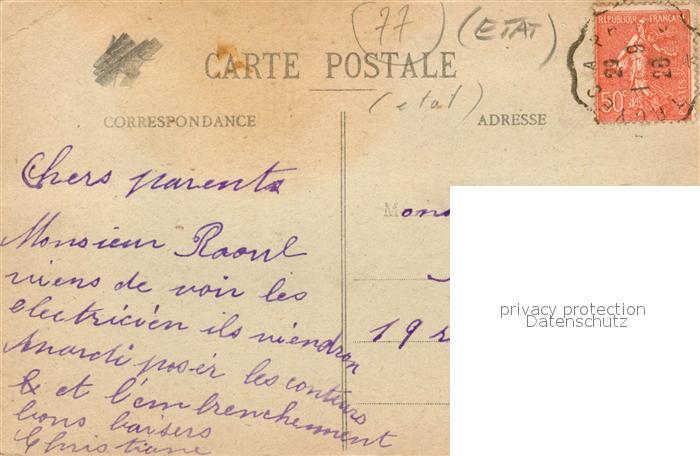 (77)
(ETAT)
CARTE POSTALE
(etat)
CORRESPONDANCE
ADRESSE
RÉPUBLIQUE FRANÇAISE
50c
29 9
26
Chers parents
Monsieur Raoul
viens de voir les
electricién ils viendron
Mardi posér les conteurs
et et l'embrenchement
bons baisers
Christiane
Mons
192
privacy protection
Datenschutz